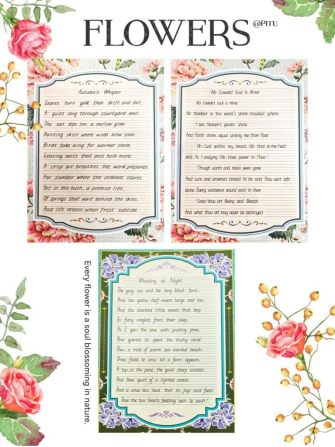 FLOWERS
@PITU
Autumn's Whisper
Leaves turn gold, then drift and fall,
A quiet song through courtyard wall.
The sun dips low, a mellow glow,
Painting skies where winds blow slow.
Birds take wing for warmer shore,
Leaving nests that once held more.
A crisp air breathes, the world prepares,
For slumber where the coldness stares.
Yet in this hush, a promise lies,
Of springs that wait behind the skies,
And life reborn when frost subside
No Coward Soul Is Mine
No coward soul is mine,
No trembler in the world's storm-troubled sphere,
I see Heaven's glories shine,
And Faith shines equal arming me from Fear
Oh God within my breast,
life, that in me hast
rest, As I undying life, have power in Thee!
Though earth and moon were gone,
And suns and universes ceased to be, And Thou wert left
alone, Every existence would exist in thee
Since thou art Being and Breath
And what thou art may never be destroyed.
Meeting at Night
The gray sea and the long black land;
And the yellow half-moon large and low;
And the startled little waves that leap
In fiery ringlets from their sleep,
As I gain the cove with pushing prow,
And quench its speed the slushy sand.
Then a mile of warm sea-scented beach;
Three fields to cross till a farm appears;
A tap at the pane, the quick sharp scratch
And blue spurt of a lighted match,
And a voice less loud, thro' its joys and fears,
Than the two hearts beating each to each!
Every flower is a soul blossoming in nature.